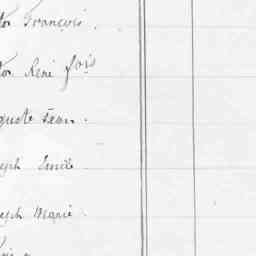 tor François.
tor René fçois
guste Jean.
seph Emile
seph Marie.